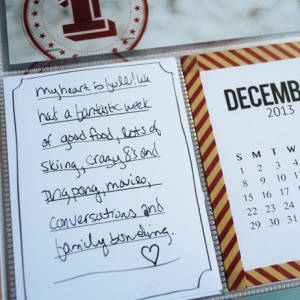 1
my heart is full! We
had a fantastic week
of good food, lots of
skiing, crazy 8's and
ping pong, movies,
conversations and
family bonding.
DECEMB
2013
S M T W
1 2 3 4
8 9 10 11
15 16 17 18
22 23 24 25
29 30 31